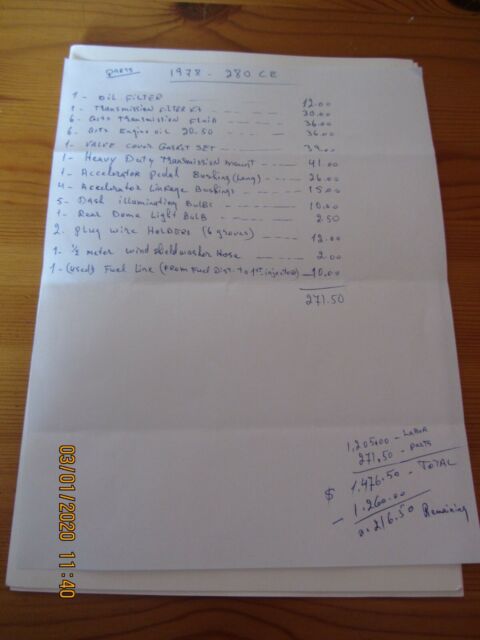 PARTS 1978 - 280 CE
1 - Oil Filter 12.00
1 - Transmission Filter Kit 20.00
6 Qrts Transmission Fluid 36.00
6 Qrts Engine oil 20.50 36.00
1 - Valve Cover Gasket Set 39.00
1 - Heavy Duty Transmission mount - 41.00
1 - Accelerator Pedal Bushing (Long) 26.00
4 - Accelerator Linkage Bushings 15.00
5 - Dash illuminating Bulbs 10.00
1 - Rear Dome Light Bulb 2.50
2. Plug wire Holders (6 grooves) 12.00
1. 1/2 meter wind shieldwasher Hose 2.00
1 - (used) Fuel Line (From Fuel Dist. to 1st injector) 10.00
271.50
1,205.00 - Labor
271.50 - Parts
$ 1.476.50 - TOTAL
- 1.260.00
216.50 Remaining
03/01/2020 11:40